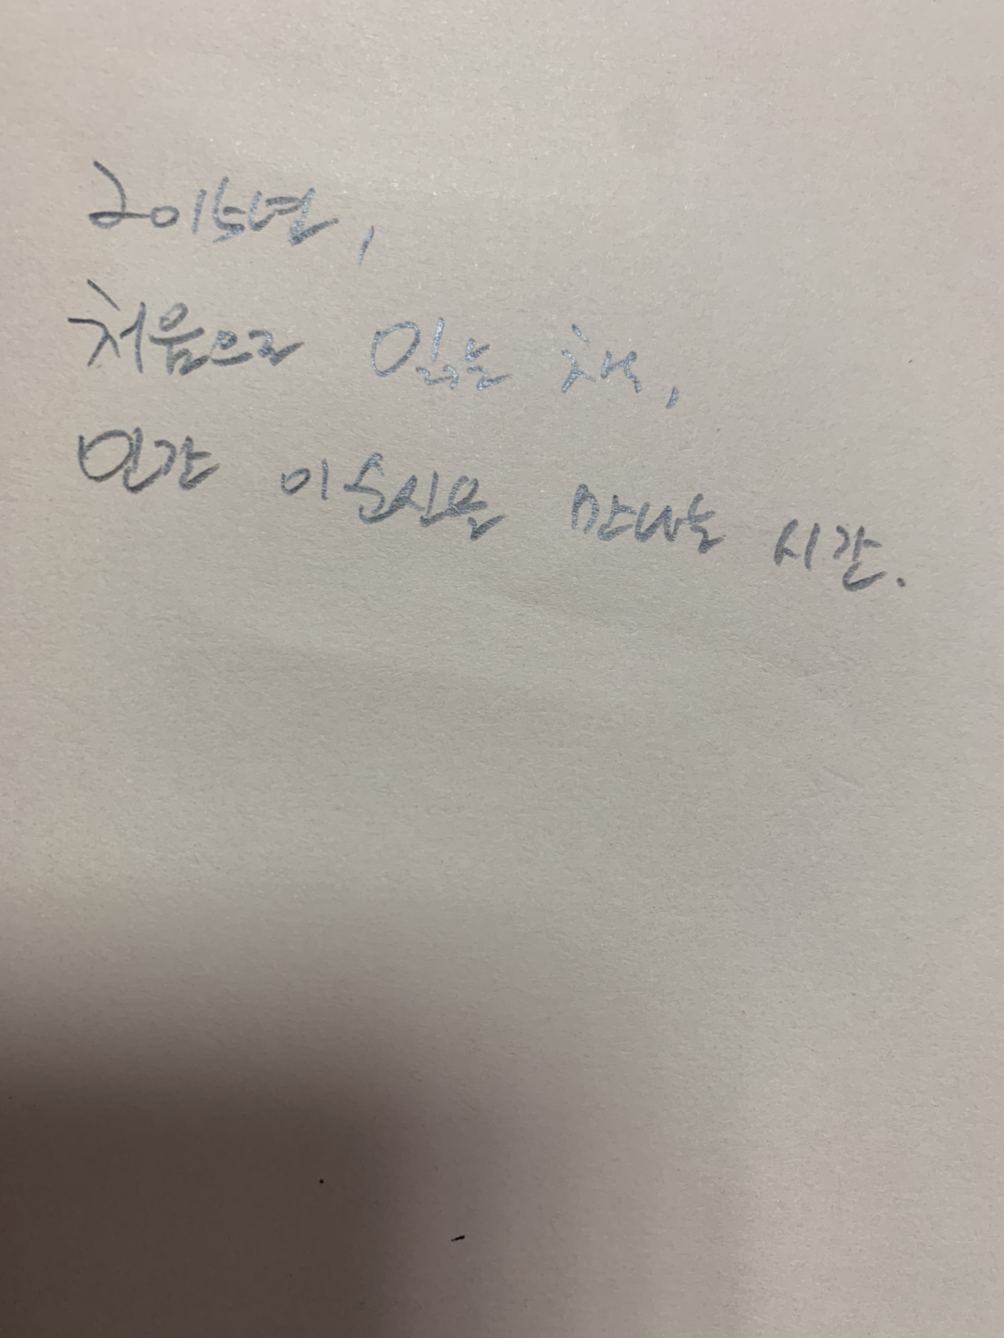 2015년,
처음으로 읽는 책,
인간 이순신을 만나는 시간.